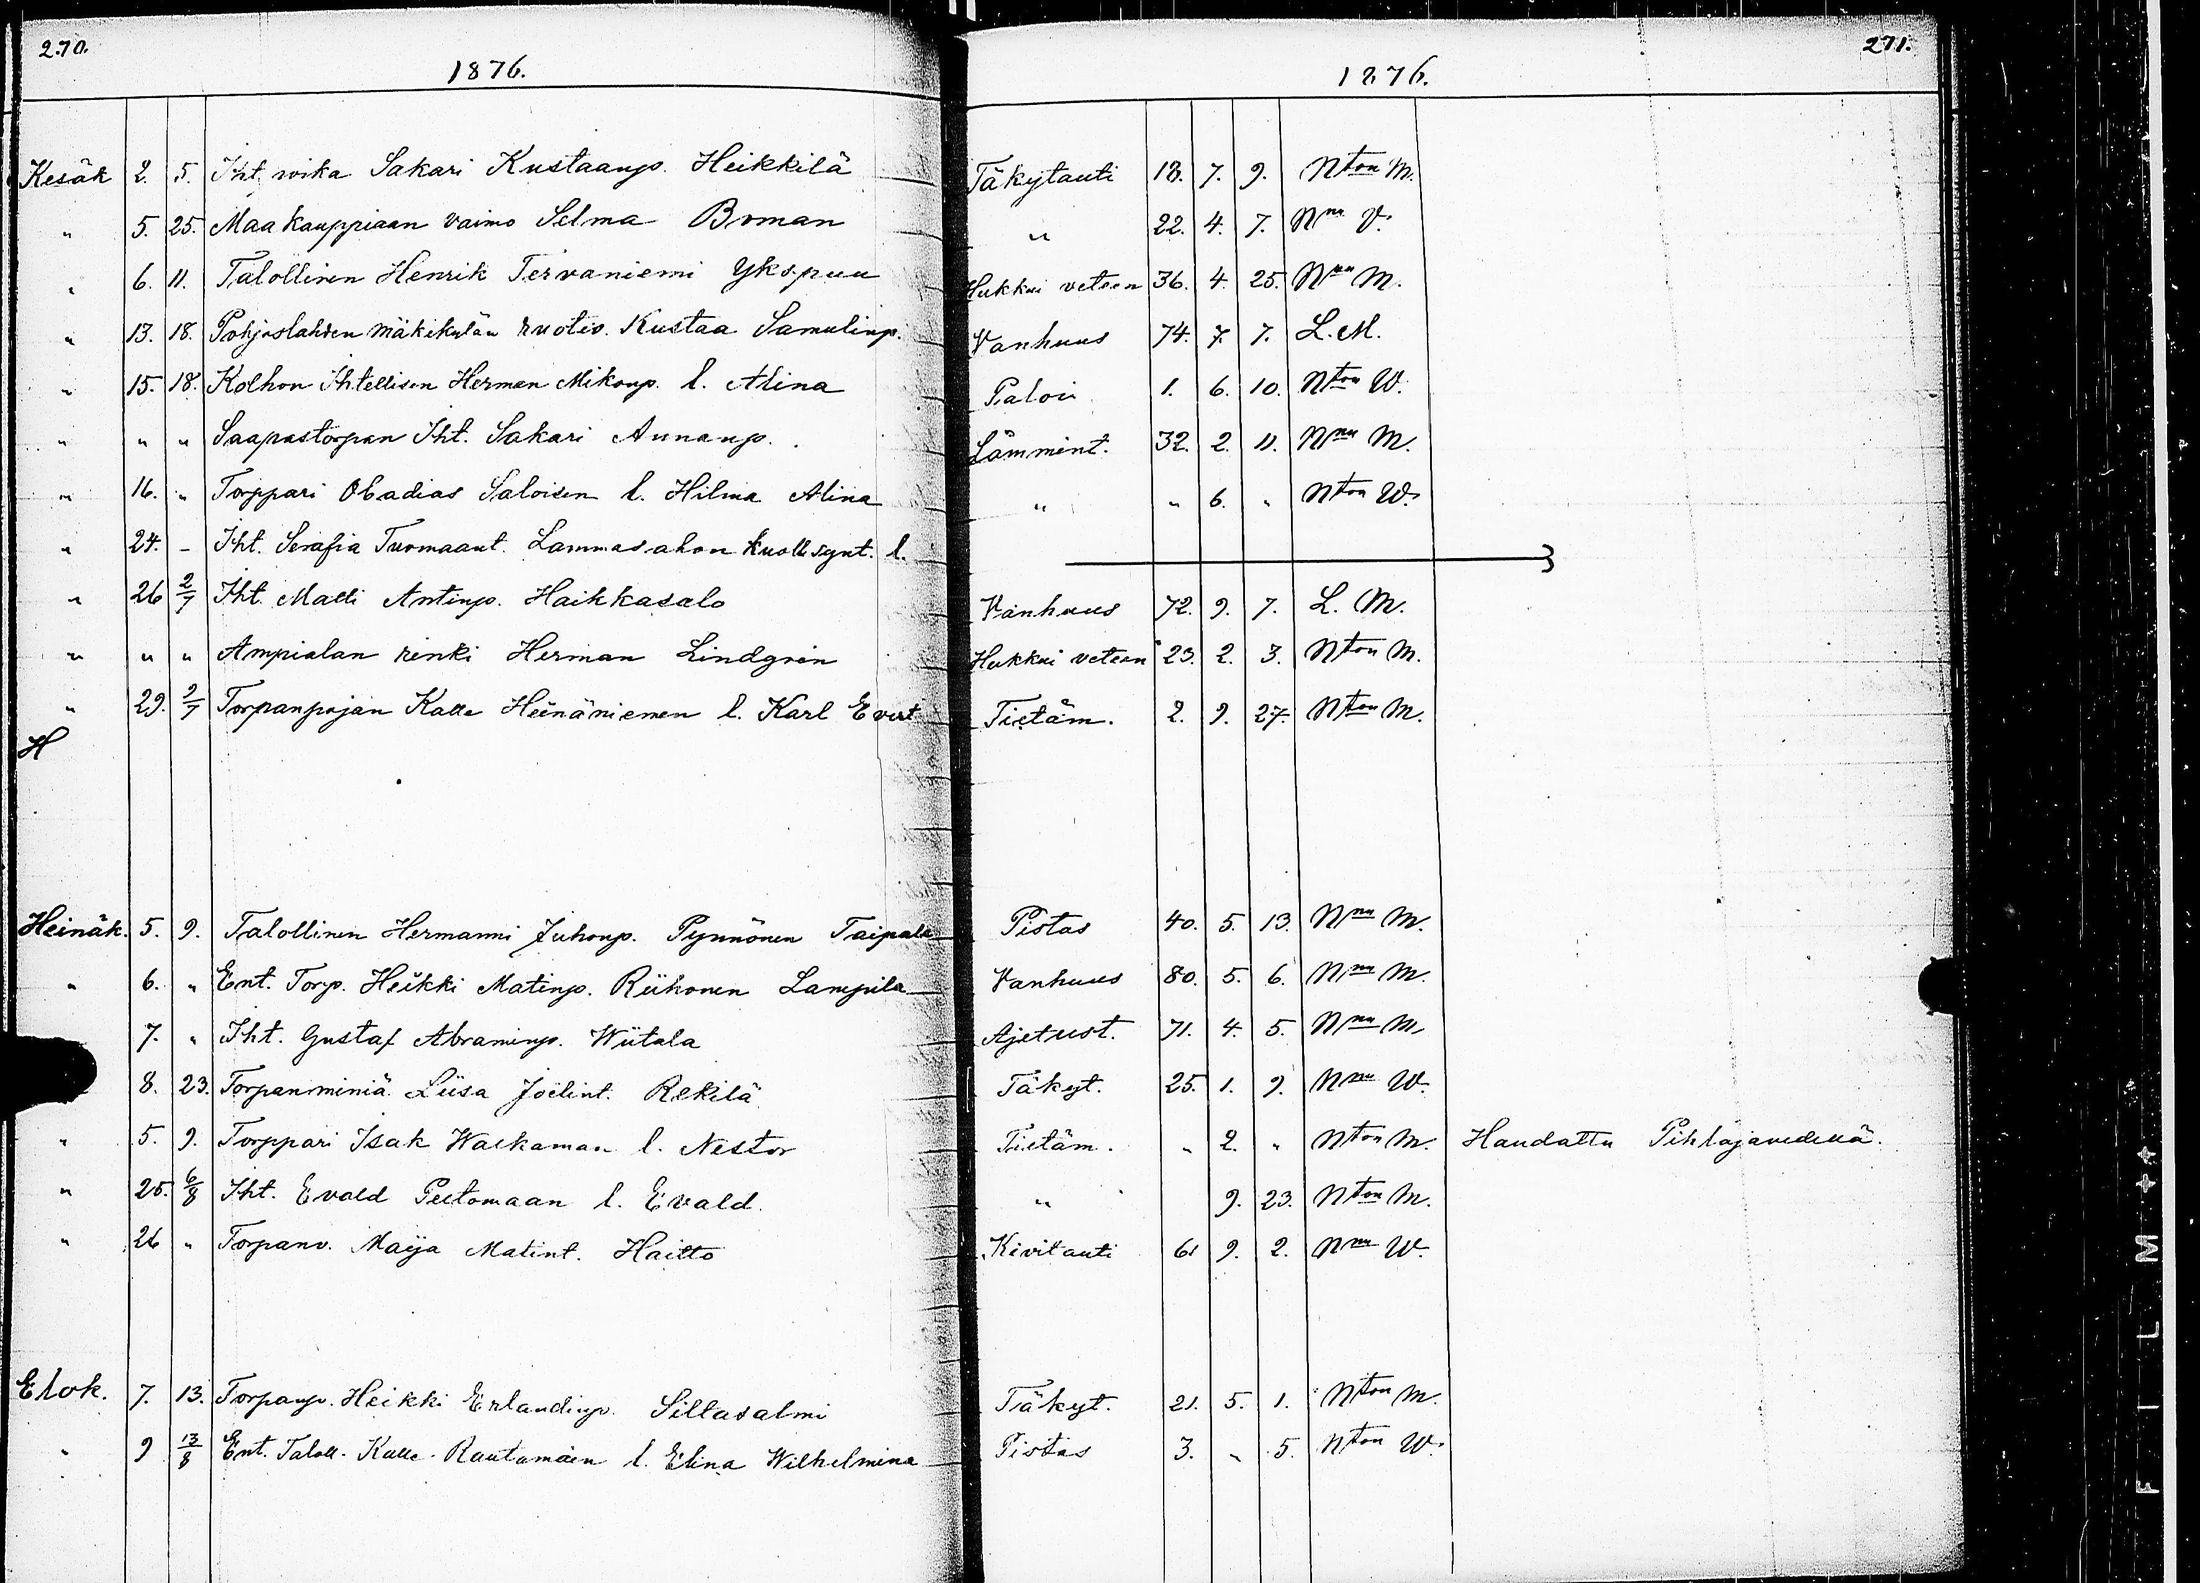 270.
1876.
Kesäk 2. 5. Iht. woika Sakari Kustaanp. Heikkilä
" 5. 25. Maakauppiaan vaimo Selma Boman
" 6. 11. Talollinen Henrik Tervaniemi Ykspuu
" 13. 18. Pohjaslahden mäkikylän ruotiv. Kustaa Samulinp.
" 15. 18. Kolhon Ihtellisen Herman Mikonp. l. Alina
" " " Saapastorpan Iht. Sakari Annanp.
" 16. " Torppari Obadias Saloisen l. Hilma Alina
" 24. - Iht. Serafia Tuomaant. Lammasahon kuoll. synt. l.
" 26 2/7 Iht. Matti Antinp. Haikkasalo
" " " Ampialan renki Herman Lindgrén
" 29. 2/7 Torpanpojan Kalle Heinäniemen l. Karl Evert
H
Heinäk. 5. 9. Talollinen Hermanni Juhonp. Pynnönen Taipale
" 6. " Ent. Torp. Heikki Matinp. Riihonen Lampila
7. " Iht. Gustaf Abraminp. Wiitala
8. 23. Torpanminiä Liisa Joelint. Rekilä
" 5. 9. Torppari Isak Walkaman l. Nestor
" 25. 6/8 Iht. Evald Peetomaan l. Evald.
" 26 " Torpanv. Maija Matint. Haitto
Elok. 7. 13. Torpanp. Heikki Erlandinp. Sillasalmi
" 9 13/8 Ent. Taloll. Kalle Rautamäen l. Elina Wilhelmina
271.
1876.
Täkytauti 18. 7. 9. Nton M.
" 22. 4. 7. Nnu V.
Hukkui veteen 36. 4. 25. Nnu M.
Vanhuus 74. 7. 7. L. M.
Paloi 1. 6. 10. Nton W.
Lämmint. 32. 2. 11. Nnu M.
" " 6. " Nton W.
Vanhuus 72. 9. 7. L. M.
Hukkui veteen 23. 2. 3. Nton M.
Tietäm. 2. 9. 27. Nton M.
Pistos 40. 5. 13. Nnu M.
Vanhuus 80. 5. 6. Nnu M.
Ajetust. 71. 4. 5. Nnu M.
Täkyt. 25. 1. 9. Nnu W.
Tietäm. " 2. " Nton M. Haudattu Pihlajavedellä.
" 9. 23. Nton M.
Kivitauti 61 9. 2. Nnu W.
Täkyt. 21. 5. 1. Nton M.
Pistos 3. " 5. Nton W.
FILM